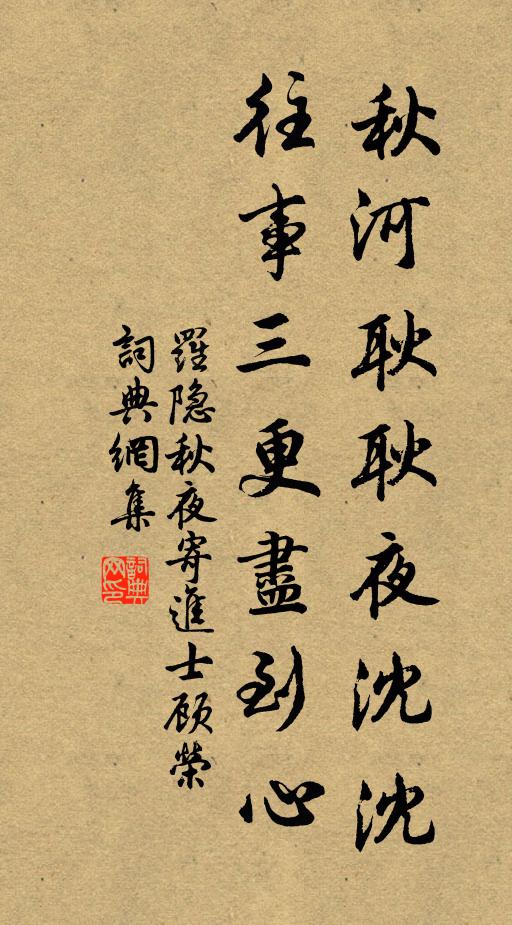 秋河耿耿夜沈沈
往事三更盡到心
羅隐秋夜寄進士顾榮
詞典網集
詞典網印